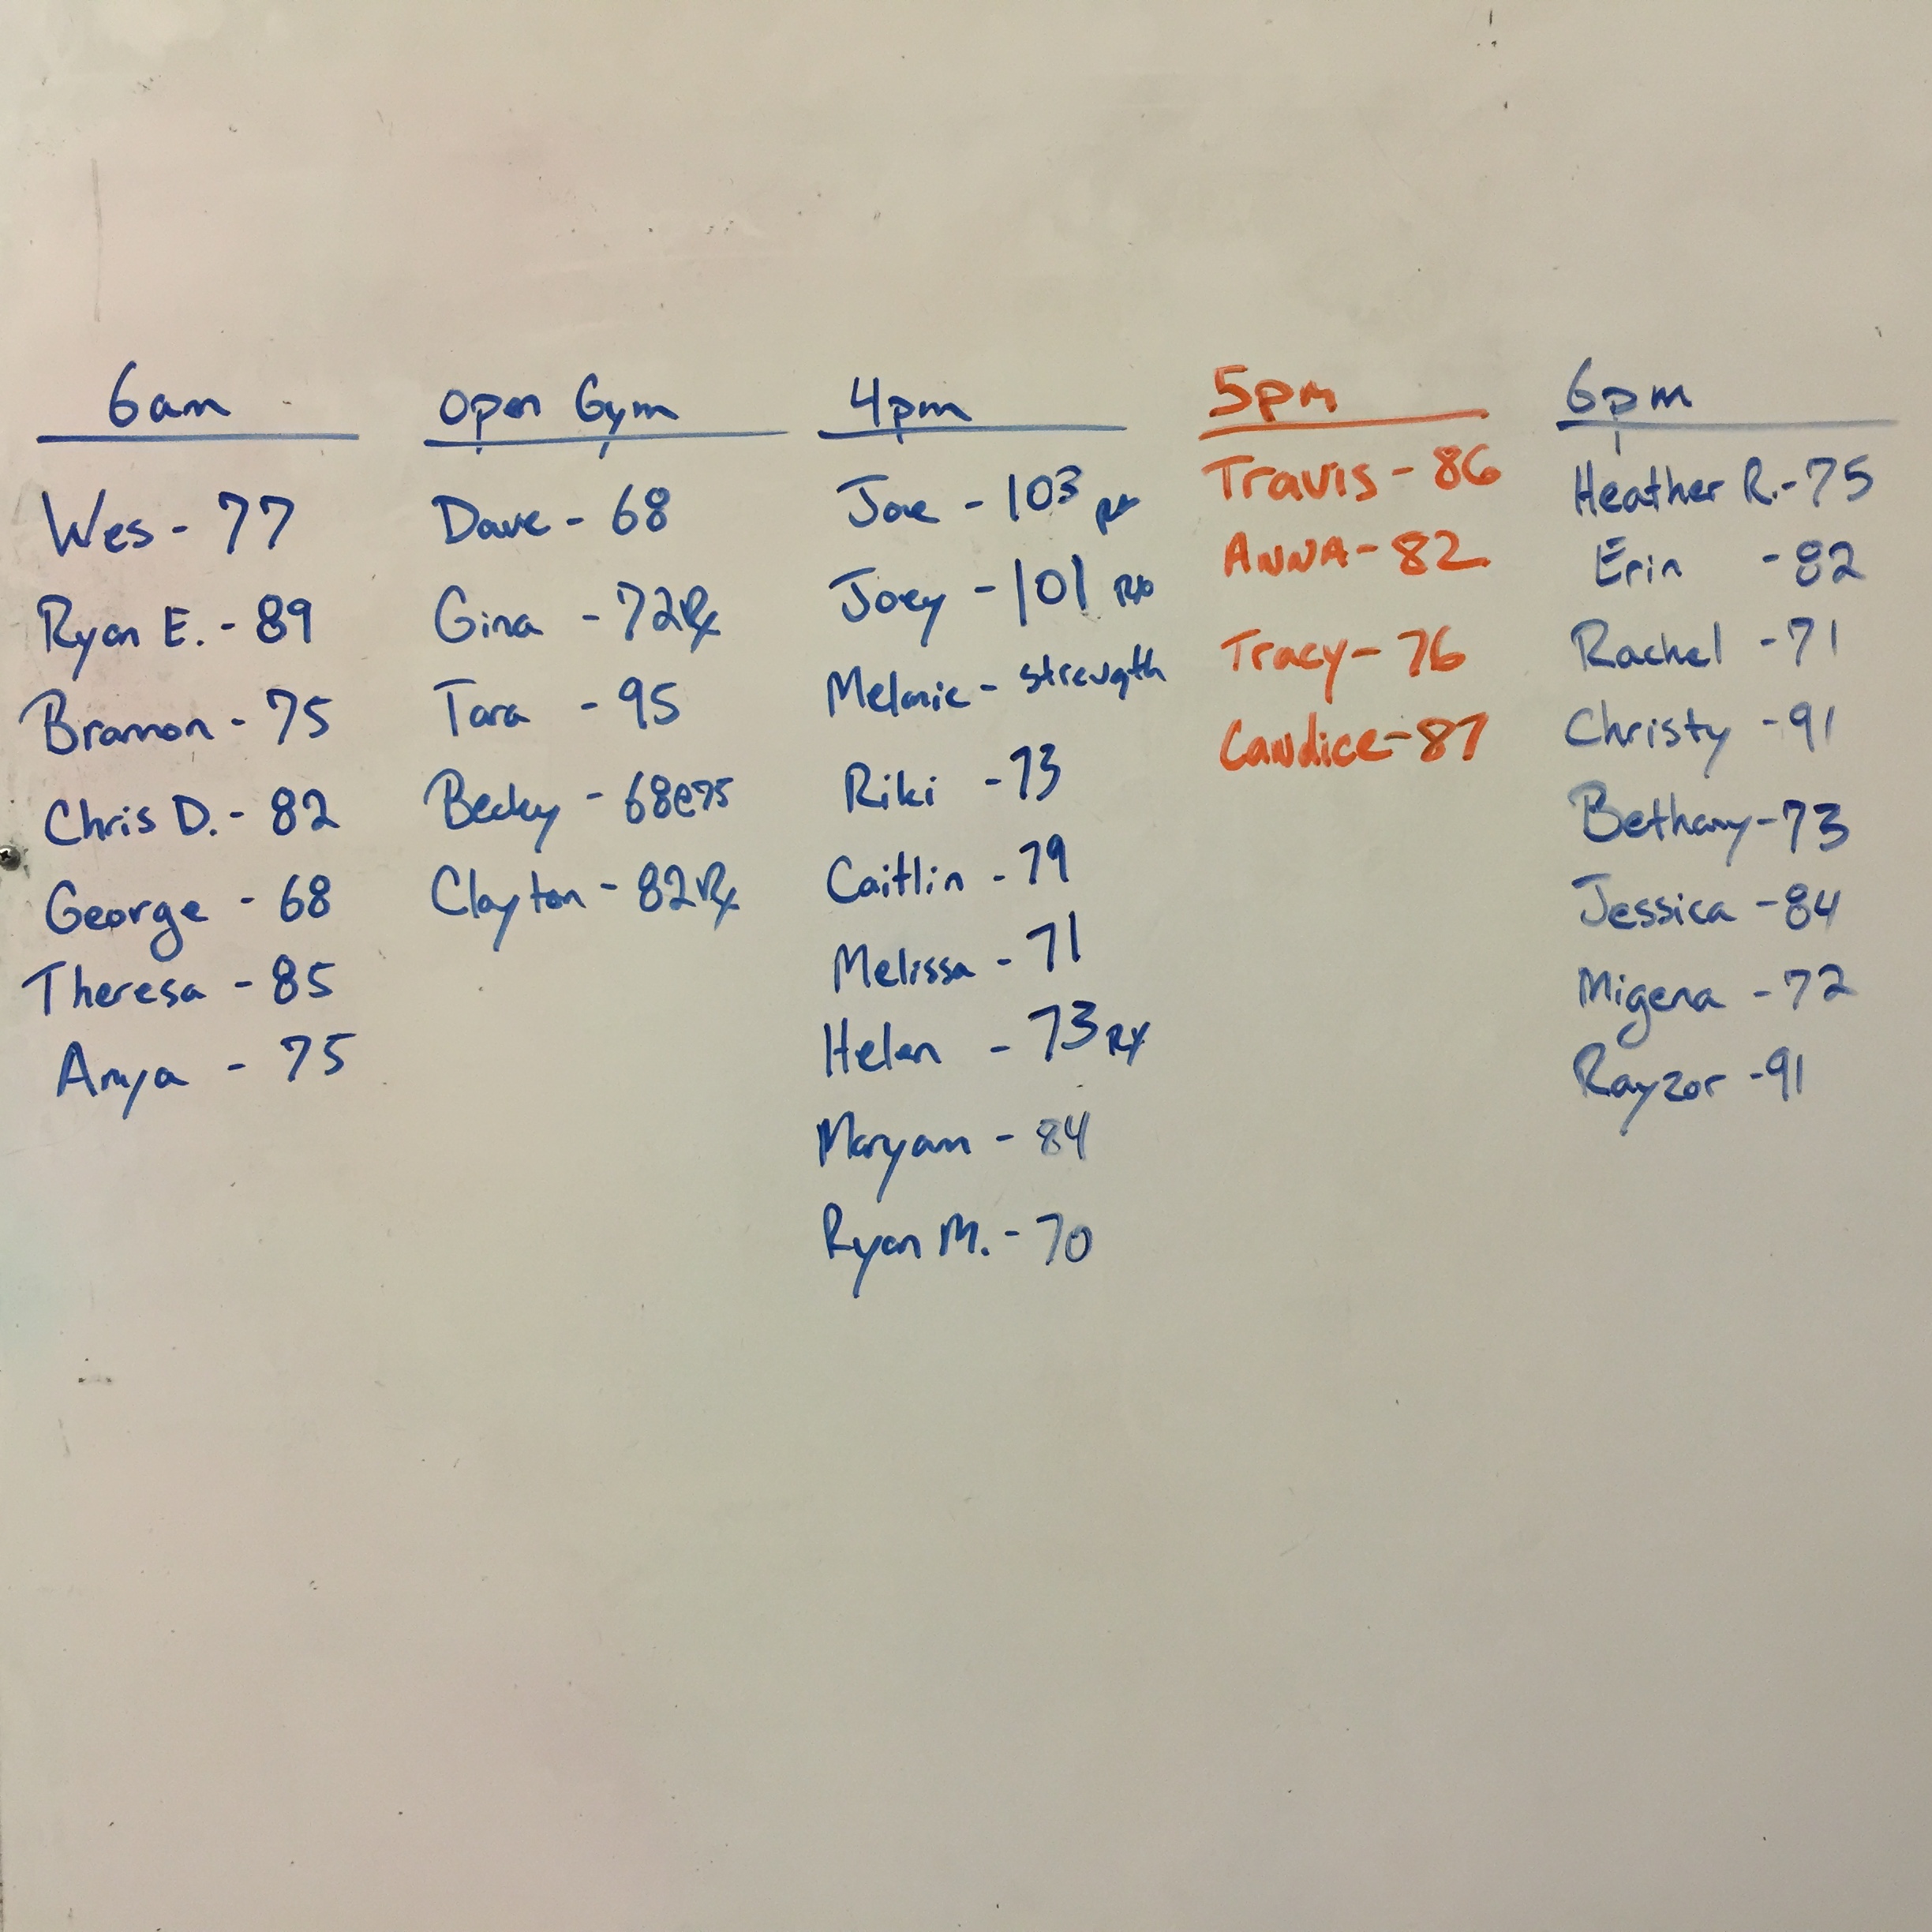 6am
Wes - 77
Ryan E. - 89
Brannon - 75
Chris D. - 82
George - 68
Theresa - 85
Anya - 75
Open Gym
Dave - 68
Gina - 72 Rx
Tara - 95
Becky - 68@75
Clayton - 82 Rx
4pm
- 103
Joey - 101
Melanie - strength
Riki - 73
Caitlin - 79
Melissa - 71
Helen - 73 RX
Maryam - 84
Ryan M. - 70
5pm
Travis - 86
ANNA - 82
Tracy - 76
Candice - 87
6pm
Heather R. - 75
Erin - 82
Rachel - 71
Christy - 91
Bethany - 73
Jessica - 84
Migena - 72
Rayzor - 91